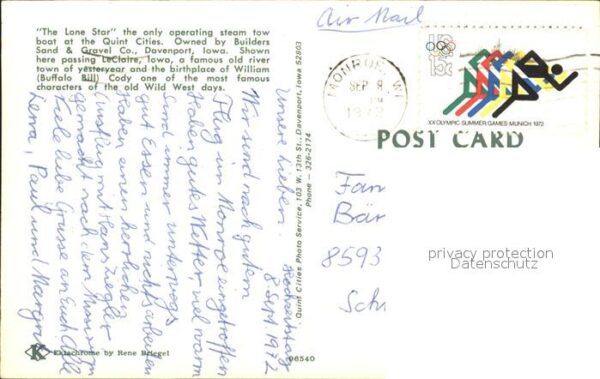 "The Lone Star" the only operating steam tow
boat at the Quint Cities. Owned by Builders
Sand & Gravel Co., Davenport, Iowa. Shown
here passing LeClaire, Iowa, a famous old river
town of yesteryear and the birthplace of William
(Buffalo Bill) Cody one of the most famous
characters of the old Wild West days.
Hochzeitstag
8 Sept 1972
Unsere Lieben.
Wir sind nach gutem
Flug in Monroe eingetroffen
Haben gutes Wetter viel warm
Sind immer unterwegs
gut Essen und nichts arbeiten
Haben einen herrlichen
Ausflug mit Hans Ziegler
gemacht nach dem
Viele liebe Grüsse an Euch Alle
Lena, Paul und
Ektachrome by Rene Briegel
96540
Quint Cities Photo Service, 103 W. 13th St., Davenport, Iowa 52803
Phone - 326-2174
Air Mail
MONROE, WI
SEP 8
PM
1972
US
15c
XX OLYMPIC SUMMER GAMES · MUNICH 1972
POST CARD
Fam
Bär
8593
Sch
privacy protection
Datenschutz